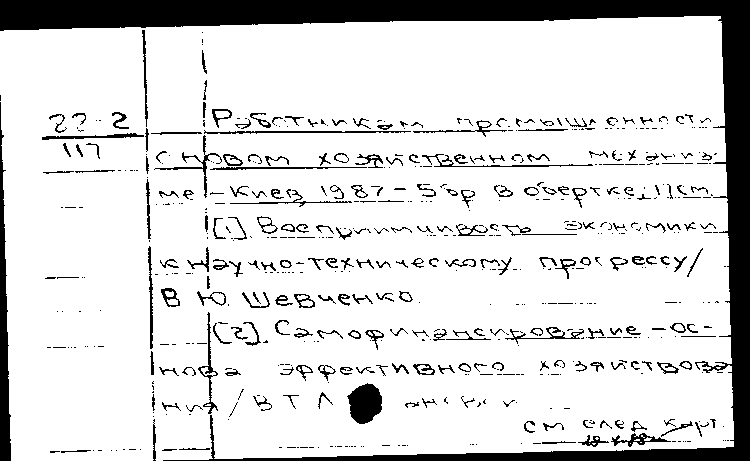 22-2
117
Работникам промышленности
о новом хозяйственном механиз
ме - Киев, 1987 - 5 бр в обертке, 17см
[1] Восприимчивость экономики
к научно-техническому прогрессу/
В Ю Шевченко
[2] Самофинансирование - ос-
нова эффективного хозяйствова
ния / В Т Л
см след карт